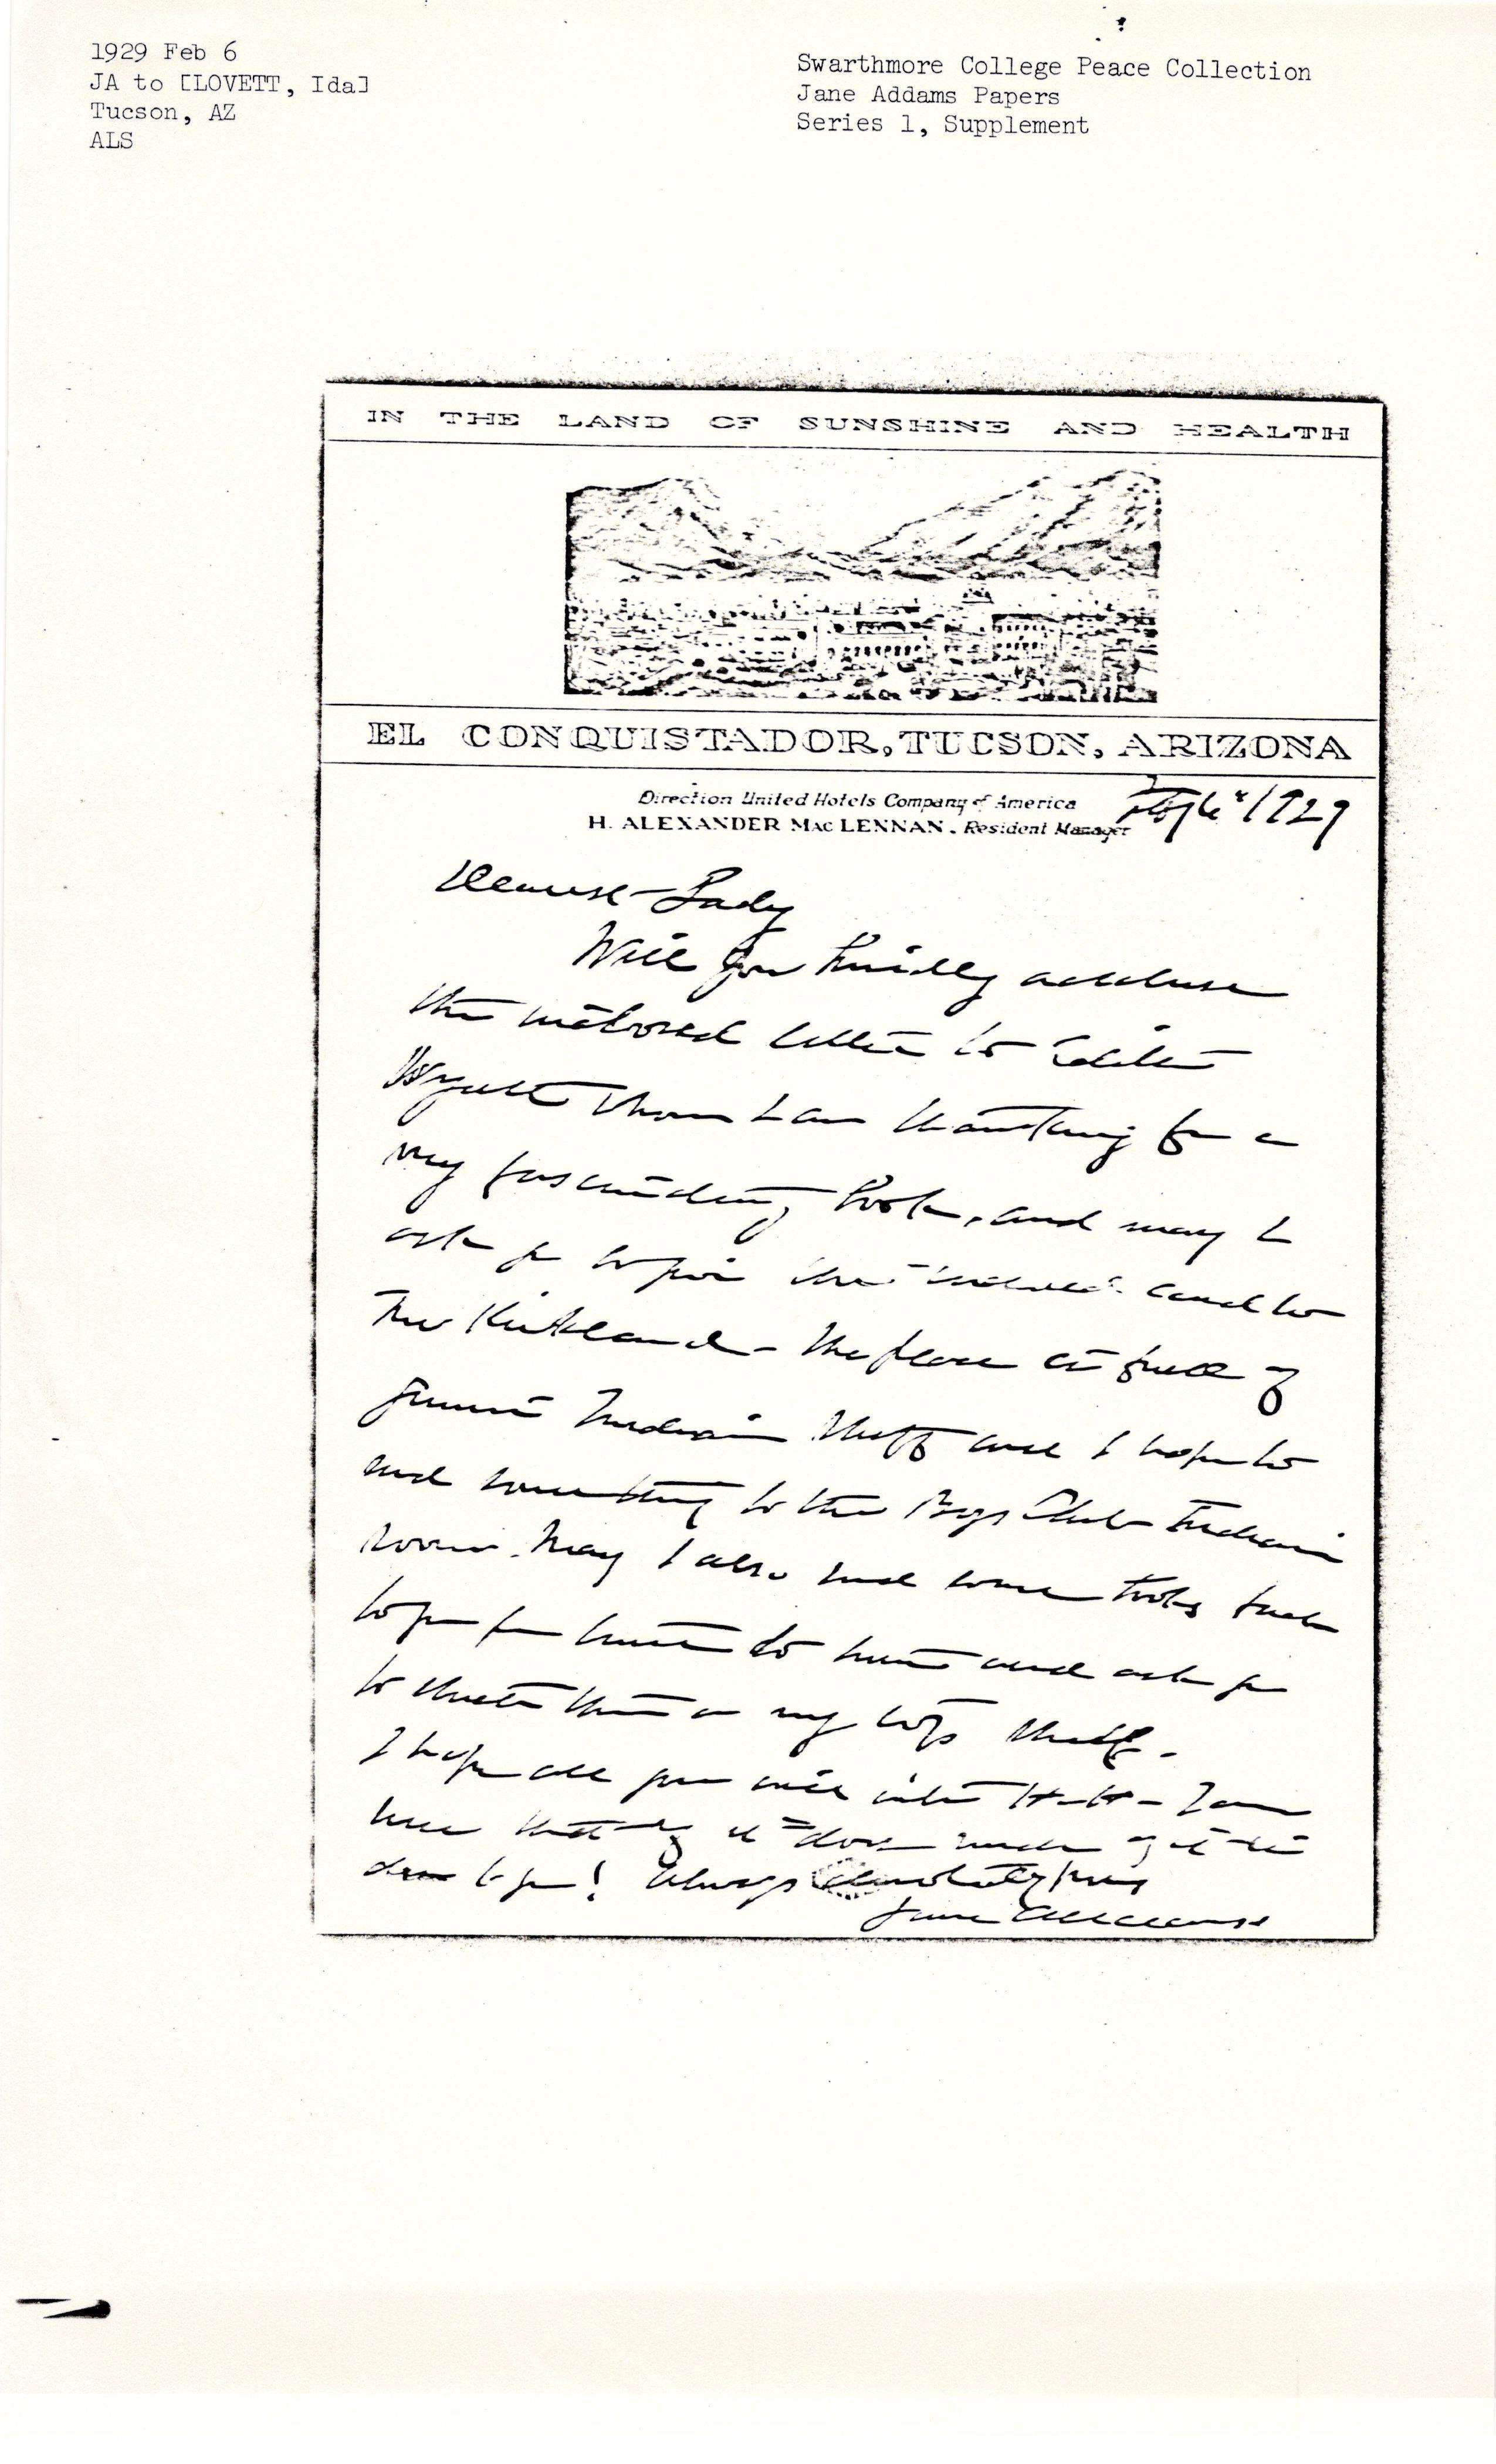 1929 Feb 6
JA to [LOVETT, Ida]
Tucson, AZ
ALS
Swarthmore College Peace Collection
Jane Addams Papers
Series 1, Supplement
IN THE LAND OF SUNSHINE AND HEALTH
EL CONQUISTADOR, TUCSON, ARIZONA
Direction United Hotels Company of America
H. ALEXANDER MAC LENNAN. Resident Manager
Feb 6" 1929
Dearest Lady
Will you kindly address
the enclosed letter to Edith
Wyatt whom I am thanking for a
my fascinating book, and may I
ask you to give the enclosed card to
Mr Kirkland - the place is full of
genuine Indian stuff and I hope to
send something to the Boys Club Indian
room. May I also send some books back
to you from time to time and ask you
to shelve them on my top shelf.
I hope all goes well with H-H - I am
here
dear to you! Always devotedly yours
Jane Addams